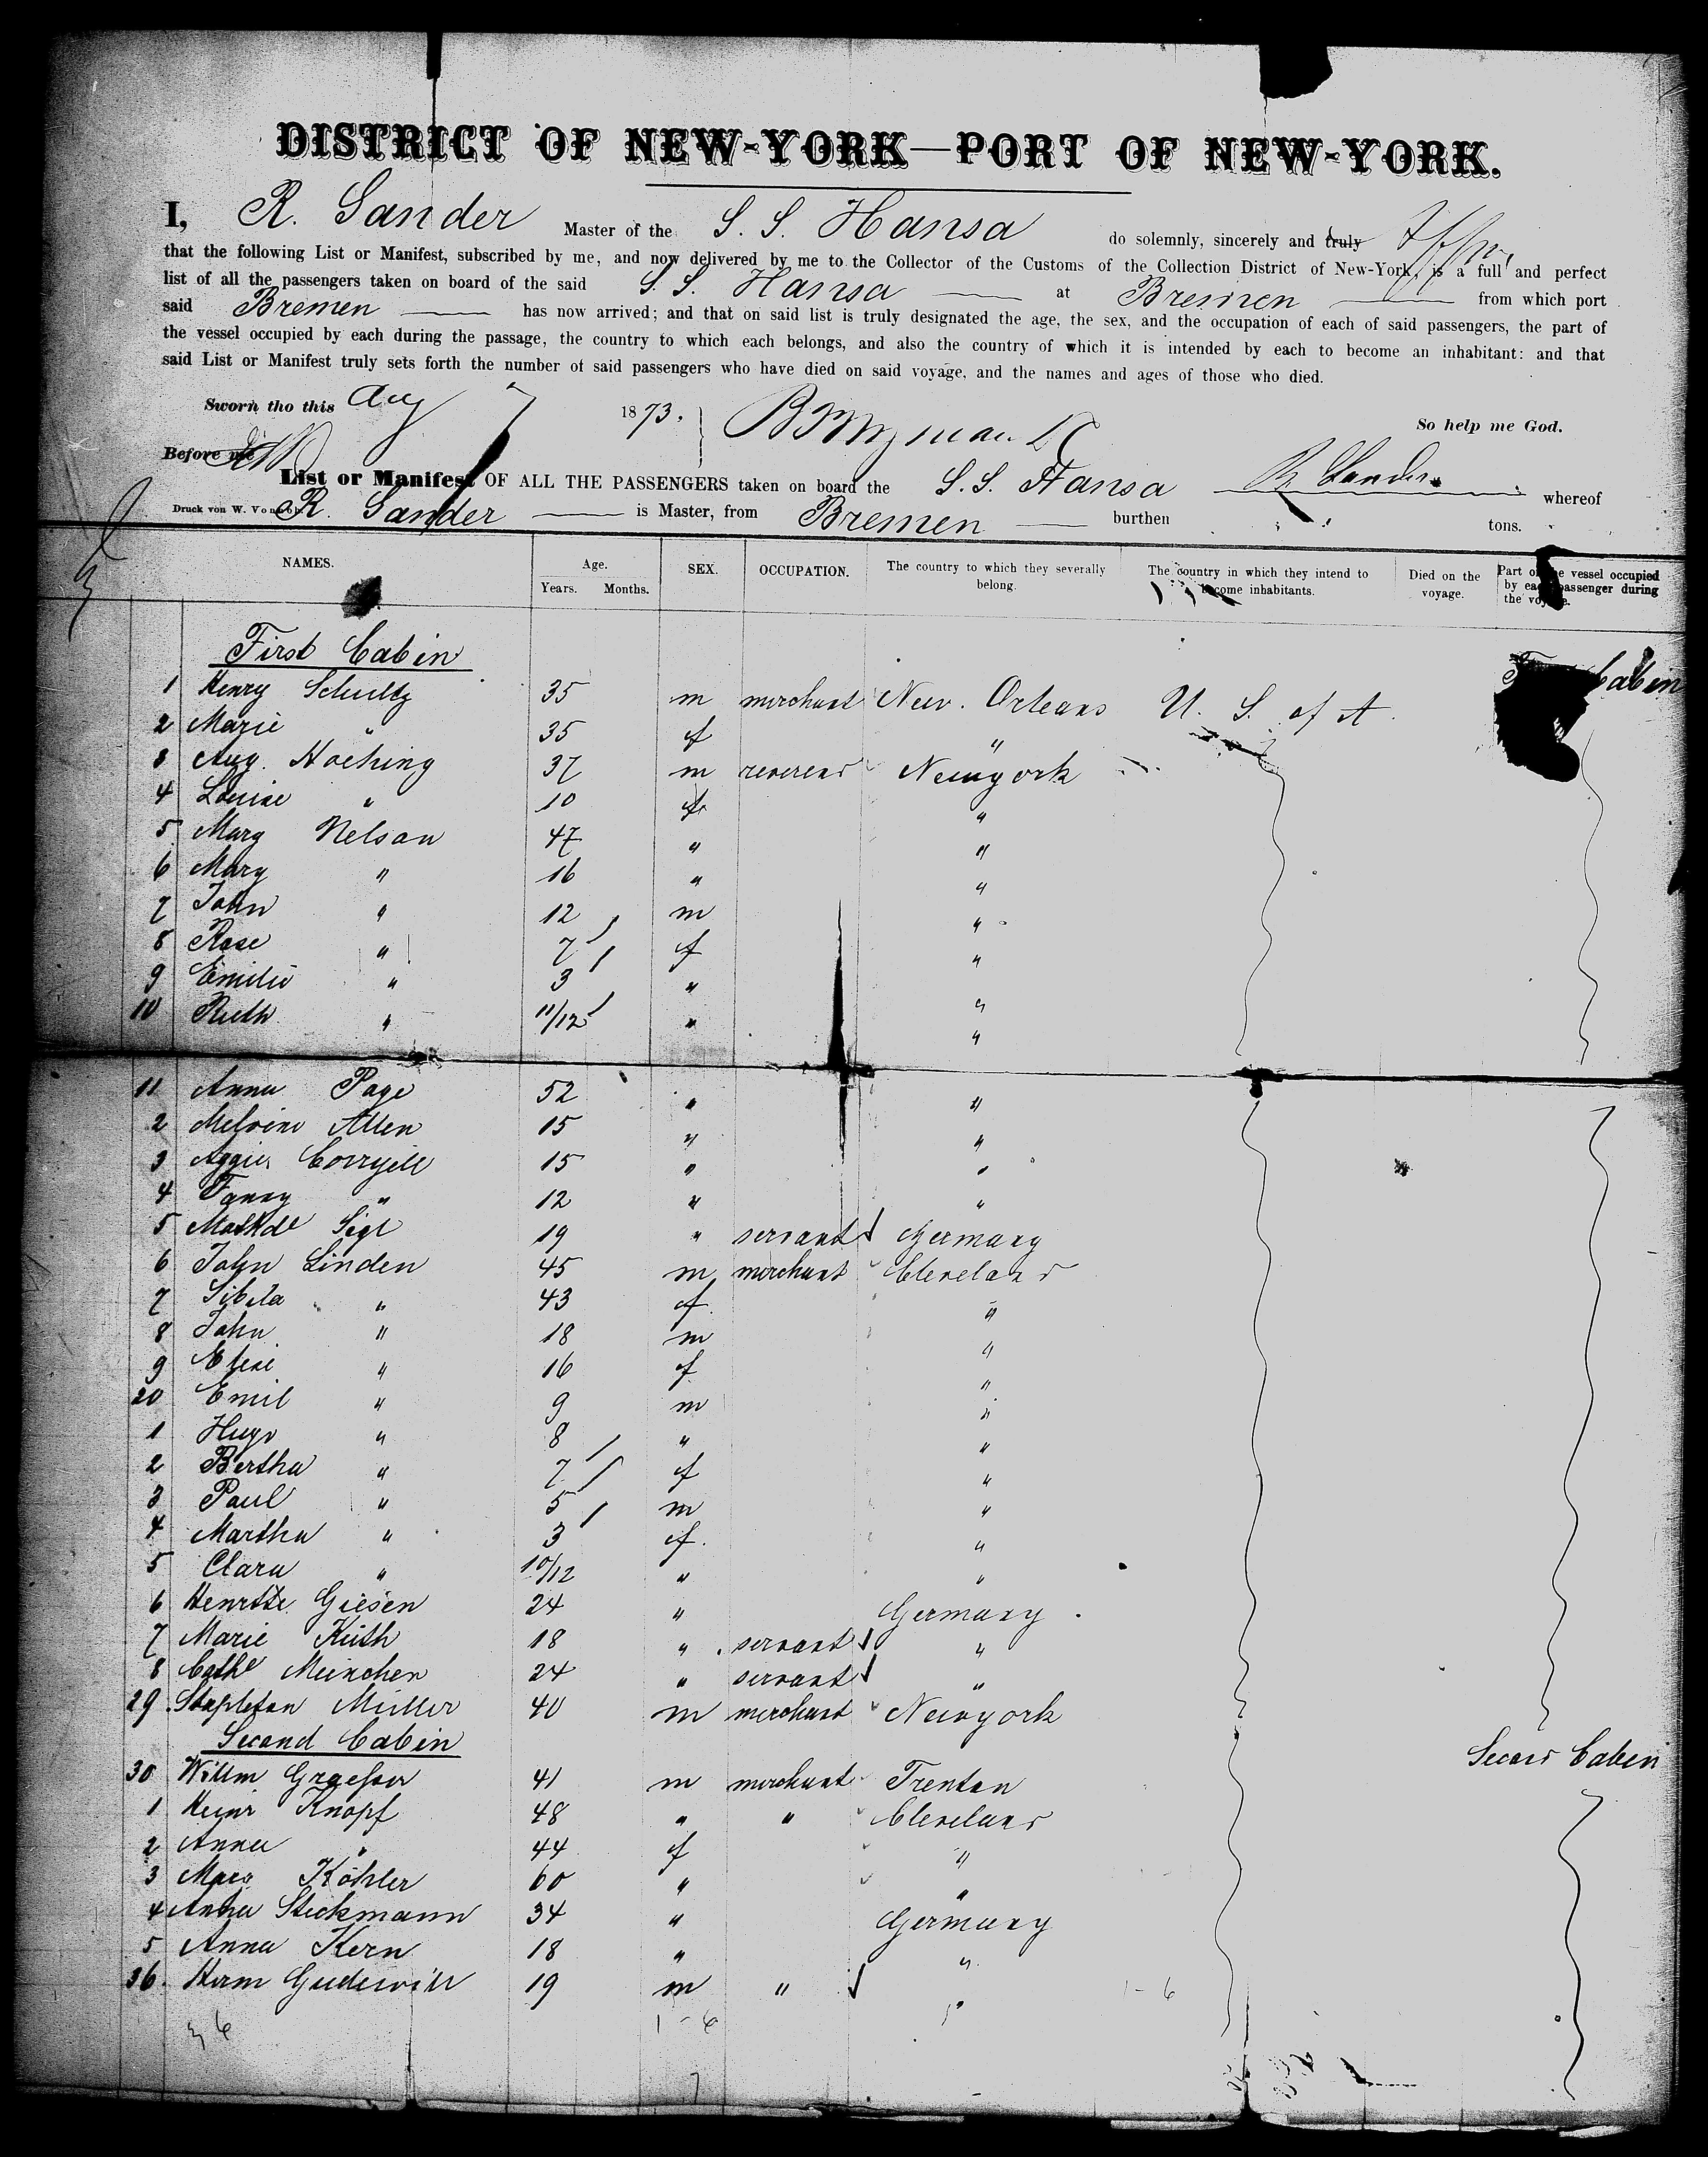 DISTRICT OF NEW-YORK—PORT OF NEW-YORK.
I, R. Sander Master of the S. S. Hansa do solemnly, sincerely and truly
that the following List or Manifest, subscribed by me, and now delivered by me to the Collector of the Customs of the Collection District of New-York, is a full and perfect
list of all the passengers taken on board of the said S. S. Hansa at Bremen from which port
said Bremen has now arrived; and that on said list is truly designated the age, the sex, and the occupation of each of said passengers, the part of
the vessel occupied by each during the passage, the country to which each belongs, and also the country of which it is intended by each to become an inhabitant: and that
said List or Manifest truly sets forth the number of said passengers who have died on said voyage, and the names and ages of those who died.
Sworn tho this Aug 7 1873. So help me God.
Before me R Sander
List or Manifest OF ALL THE PASSENGERS taken on board the S. S. Hansa whereof
Druck von W. R. Sander is Master, from Bremen burthen tons.
NAMES. Age. Years. Months. SEX. OCCUPATION. The country to which they severally belong. The country in which they intend to become inhabitants. Died on the voyage. Part of the vessel occupied by each passenger during the voyage.
First Cabin
1 Henry Schultz 35 m merchant New. Orleans U. S. of A. Cabin
2 Marie " 35 f "
3 Aug. Hoehing 37 m reverend Newyork
4 Louise " 10 f "
5 Mary Nelson 47 " "
6 Mary " 16 " "
7 John " 12 m "
8 Rose " 7 f "
9 Emilie " 3 " "
10 Ruth " 11/12 " "
11 Anna Page 52 " "
2 Melvine Allen 15 " "
3 Aggie Corryell 15 " "
4 Fanny " 12 " "
5 Mathde Sigl 19 " servant Germany
6 John Linden 45 m merchant Cleveland
7 Sibila " 43 f "
8 John " 18 m "
9 Elise " 16 f "
20 Emil " 9 m "
1 Hugo " 8 " "
2 Bertha " 7 f "
3 Paul " 5 m "
4 Martha " 3 f "
5 Clara " 10/12 " "
6 Henrtte Giesen 24 " Germany
7 Marie Küth 18 " servant "
8 Cathe Meinchen 24 " servant "
29 Stapleton Müller 40 m merchant Newyork
Second Cabin Second Cabin
30 Willm Graesser 41 m merchant Trenton
1 Heinr Knopf 48 " " Cleveland
2 Anna " 44 f "
3 Marg Köhler 60 " "
4 Anna Steckmann 34 " Germany
5 Anna Kern 18 " "
36 Herm Gudewill 19 m " "
36 1-6 1-6